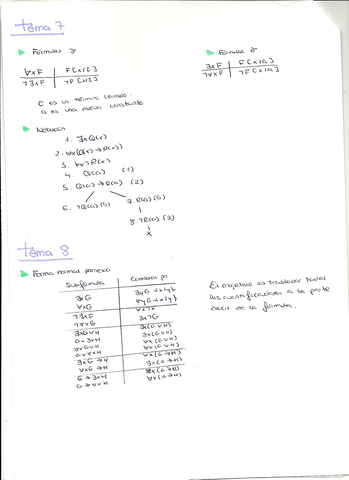 Tema 7
Fórmulas γ
∀xF | F[x/c]
¬∃xF | ¬F[x/c]
Fórmulas δ
∃xF | F[x/a]
¬∀xF | ¬F[x/a]
C es un término cerrado
a es una nueva constante
Notación
1. ∃xQ(x)
2. ∀x(Q(x)→R(x))
3. ∀x¬R(x)
4. Q(a) (1)
5. Q(a)→R(a) (2)
6. ¬Q(a) (5)
7. R(a) (5)
8. ¬R(a) (3)
x
Tema 8
Forma normal prenexa
Subfórmula | Cambiar por
∃xG
∀xG
¬∃xF | ∀x¬F
¬∀xG | ∃x¬G
∃xG∨H | ∃x(G∨H)
G∨∃xH | ∃x(G∨H)
∀xG∨H | ∀x(G∨H)
G∨∀xH | ∀x(G∨H)
∃xG→H | ∀x(G→H)
∀xG→H | ∃x(G→H)
G→∃xH | ∃x(G→H)
G→∀xH | ∀x(G→H)
El objetivo es trasladar todos
los cuantificadores a la parte
de la fórmula.